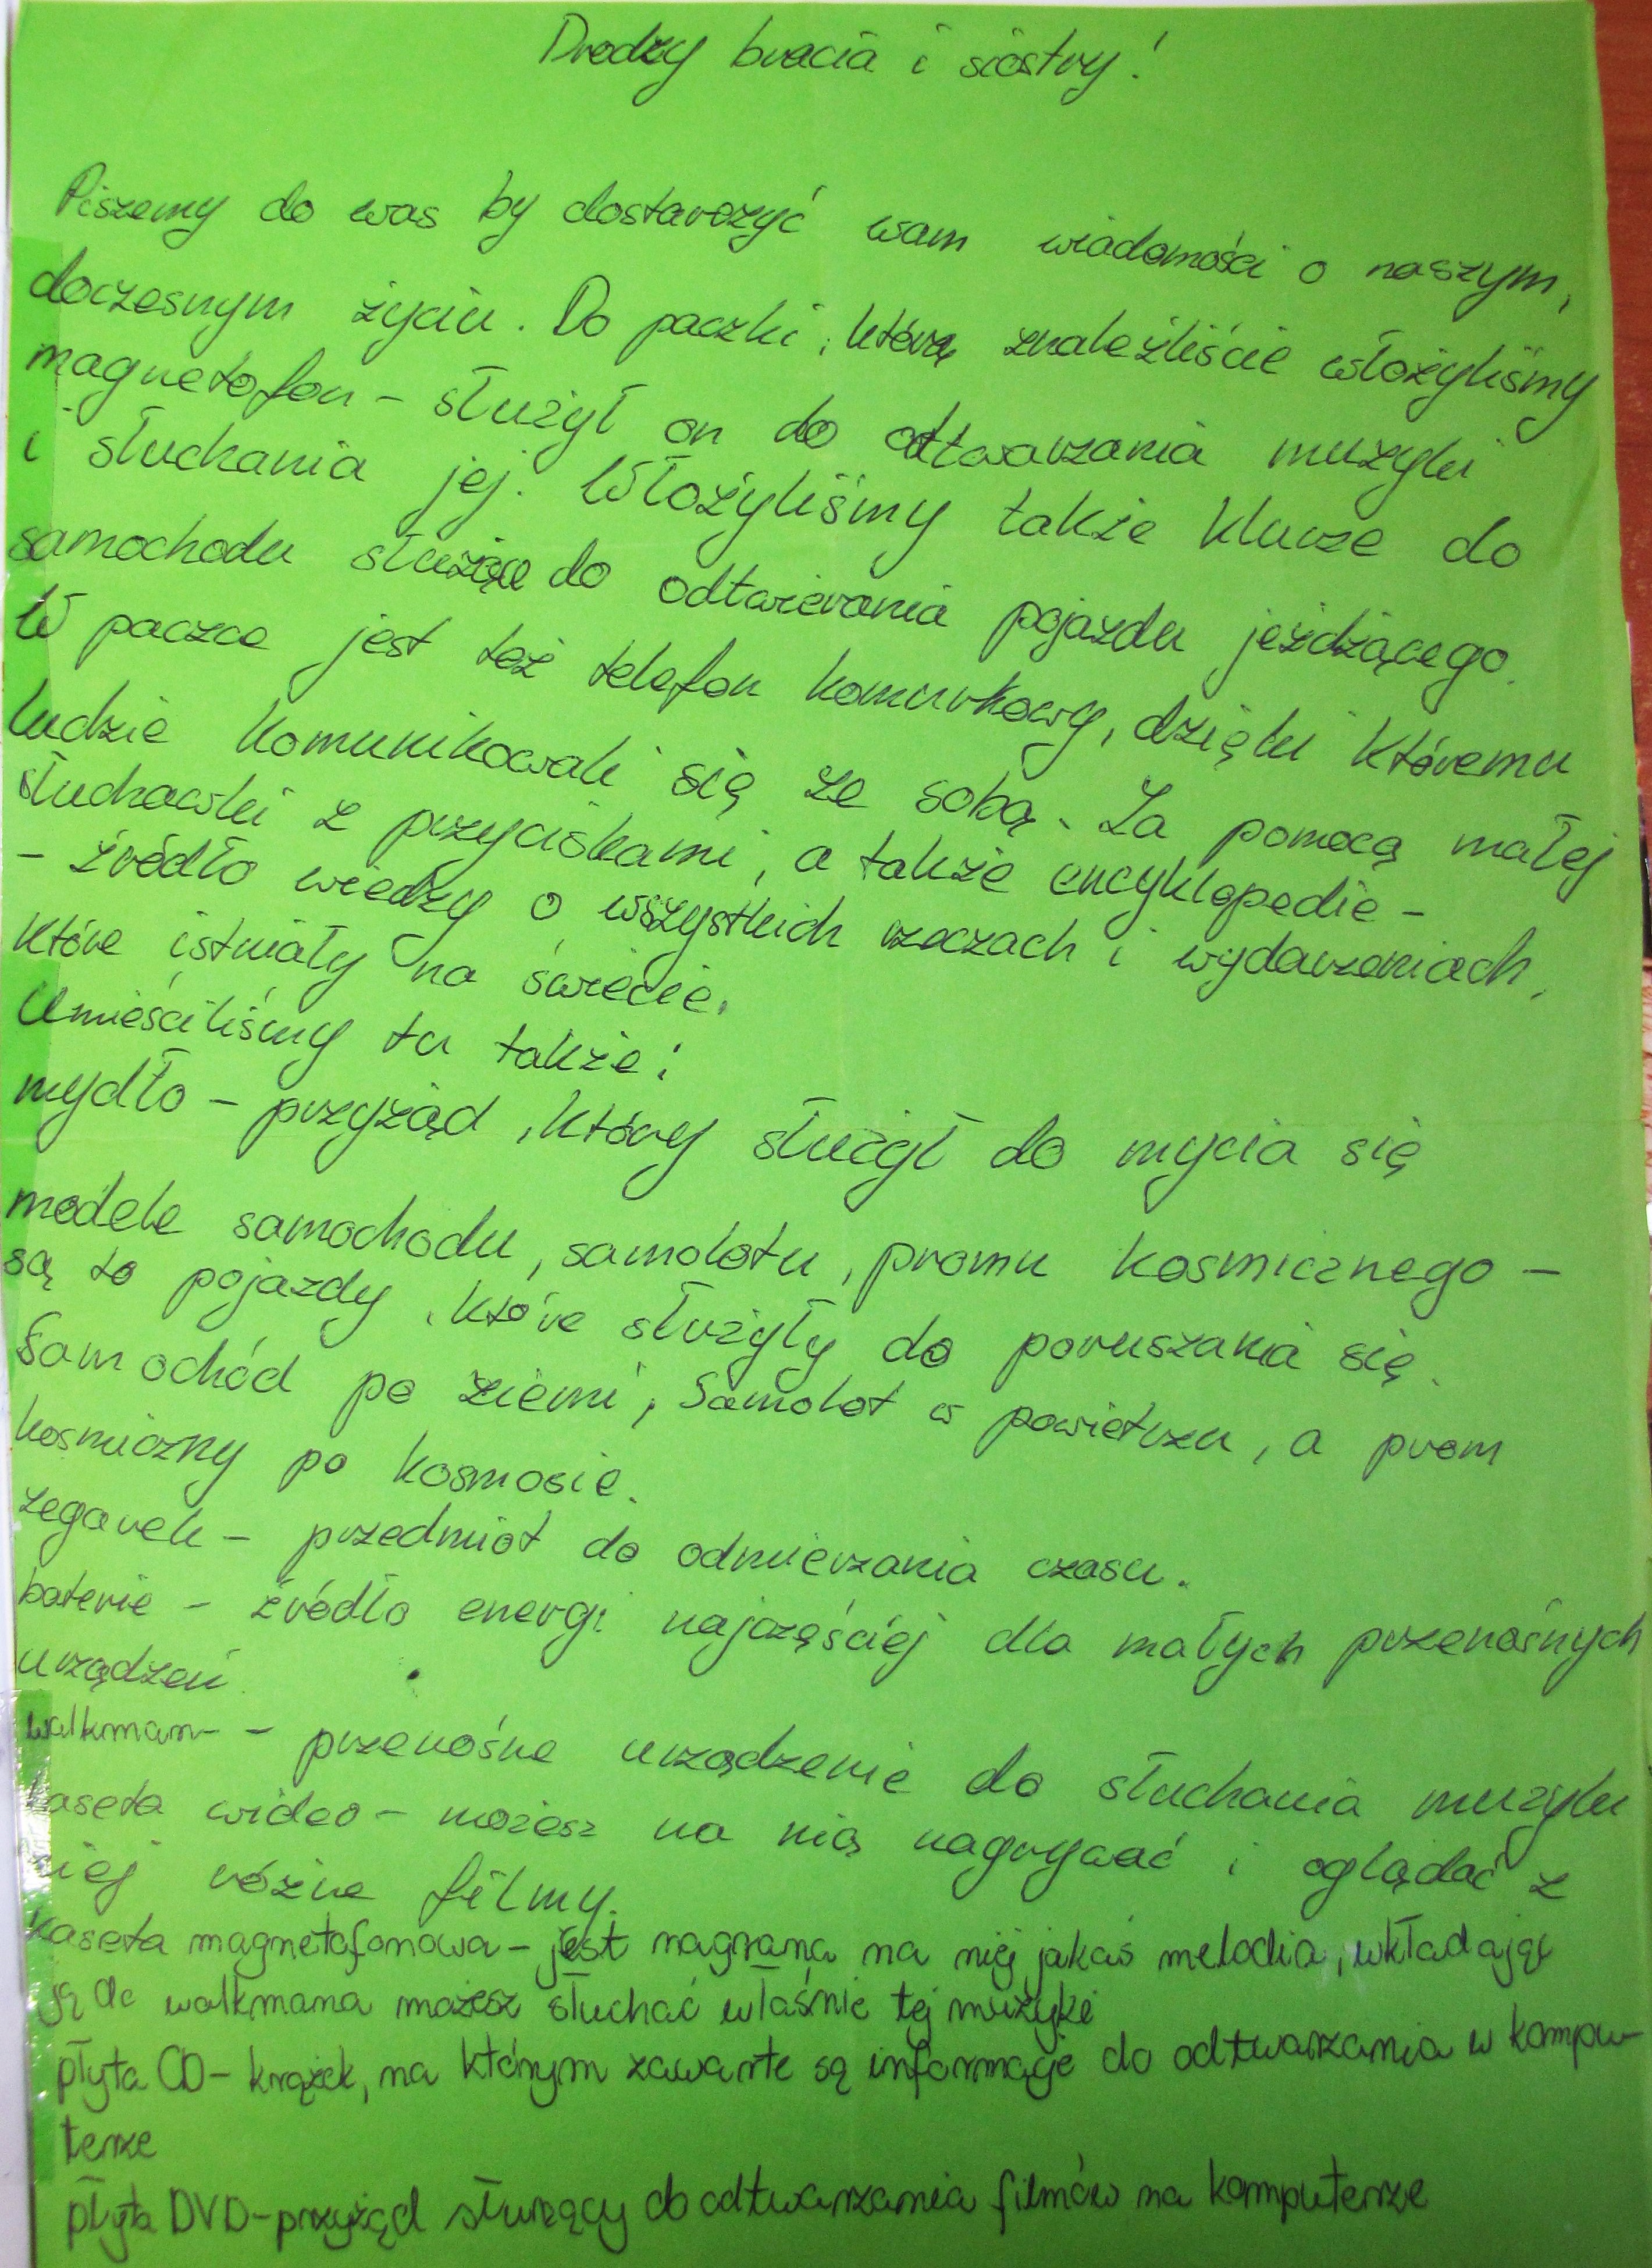 Drodzy bracia i siostry!
Piszemy do was by dostarczyć wam wiadomości o naszym,
doczesnym życiu. Do paczki, którą znaleźliście włożyliśmy
magnetofon - służył on do odtwarzania muzyki
i słuchania jej. Włożyliśmy także klucze do
samochodu służące do odtwierania pojazdu jeżdżącego.
W paczce jest też telefon komurkowy, dzięki któremu
ludzie komunikowali się ze sobą. Za pomocą małej
słuchawki z przyciskami, a także encyklopedie -
- źródło wiedzy o wszystkich rzeczach i wydarzeniach,
które istniały na świecie.
Umieściliśmy tu także:
mydło - przyżąd, który służył do mycia się
modele samochodu, samolotu, promu kosmicznego -
są to pojazdy, które służyły do poruszania się.
Samochód po ziemi, Samolot w powietrzu, a prom
kosmiczny po kosmosie.
zegarek - przedmiot do odmierzania czasu.
baterie - źródło energi najczęściej dla małych przenośnych
urządzeń
walkman - przenośne urządzenie do słuchania muzyki
kaseta wideo - możesz na nią nagrywać i oglądać z
niej różne filmy.
kaseta magnetofonowa - jest nagrana na niej jakaś melodia, wkładając
ją do walkmana możesz słuchać właśnie tej muzyki
płyta CD - krążek, na którym zawarte są informacje do odtwarzania w kompu-
terze
płyta DVD - przyżąd służący do odtwarzania filmów na komputerze